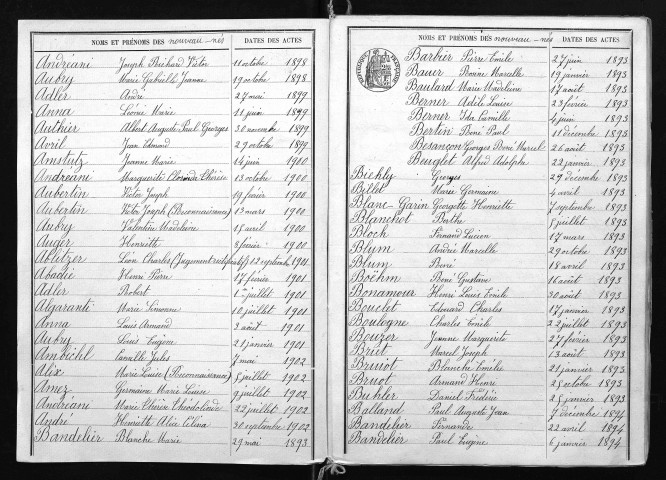 NOMS ET PRÉNOMS DES nouveau-nés DATES DES ACTES
Andréani Joseph Richard Victor 11 octobre 1898
Aubry Marie Gabrielle Jeanne 19 octobre 1898
Adler André 27 mai 1899
Anna Léonie Marie 11 juin 1899
Authier Albert Auguste Paul Georges 30 novembre 1899
Avril Jean Edmond 29 octobre 1899
Amstutz Jeanne Marie 14 juin 1900
Andréani Marguerite Thérèse 13 octobre 1900
Aubertin Victor Joseph 19 février 1900
Aubertin Victor Joseph (Reconnaissance) 13 mars 1900
Aubry Valentine Madeleine 15 avril 1900
Auger Henriette 8 février 1900
Léon Charles (Jugement rectificatif) 12 septembre 1901
Abadie Henri Pierre 17 février 1901
Adler Robert 1er juillet 1901
Algaranti Marie Simonne 10 juillet 1901
Anna Louis Armand 3 août 1901
Aubry Louis Eugène 21 janvier 1901
Ambiehl Camille Jules 7 mai 1902
Alix Marie Louise (Reconnaissance) 8 juillet 1902
Amez Germaine Marie Louise 9 juillet 1902
Andréani Marie 22 juillet 1902
André Henriette Alice Célina 30 septembre 1902
Bandelier Blanche Marie 29 mai 1893
NOMS ET PRÉNOMS DES nouveau-nés DATES DES ACTES
Barbier Pierre Emile 27 juin 1893
Bauer Marcelle 19 janvier 1893
Baulard Marie Madeleine 17 août 1893
Berner Adèle Louise 23 février 1893
Berner Ida Camille 4 juin 1893
Bertin René Paul 11 décembre 1893
Besançon Georges René Marcel 26 août 1893
Beuglet Alfred Adolphe 22 janvier 1893
Bichly Georges 29 décembre 1893
Billet Marie Germaine 4 avril 1893
Blanc-Garin Georgette Henriette 7 septembre 1893
Blanchot Berthe 5 juillet 1893
Block Fernand Lucien 17 mars 1893
Blum André Marcelle 29 octobre 1893
Blum René 18 avril 1893
Boëhm René Gustave 16 août 1893
Bonamour Henri Louis Emile 30 août 1893
Bouclet Edouard Charles 17 janvier 1893
Boulogne Charles Emile 22 juillet 1893
Bouzer Jeanne Marguerite 27 février 1893
Briet Marcel Joseph 13 août 1893
Bruiot Blanche Emilie 21 janvier 1893
Bruot Armand Henri 25 octobre 1893
Buhler Daniel Frédéric 25 janvier 1893
Balland Paul Auguste Jean 7 décembre 1894
Bandelier Fernande 22 avril 1894
Bandelier Paul Eugène 6 janvier 1894